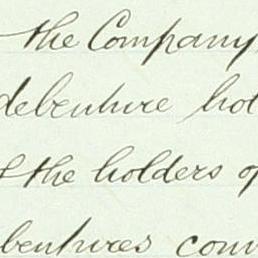 the Company
debenture hol
f the holders of
bentures conv